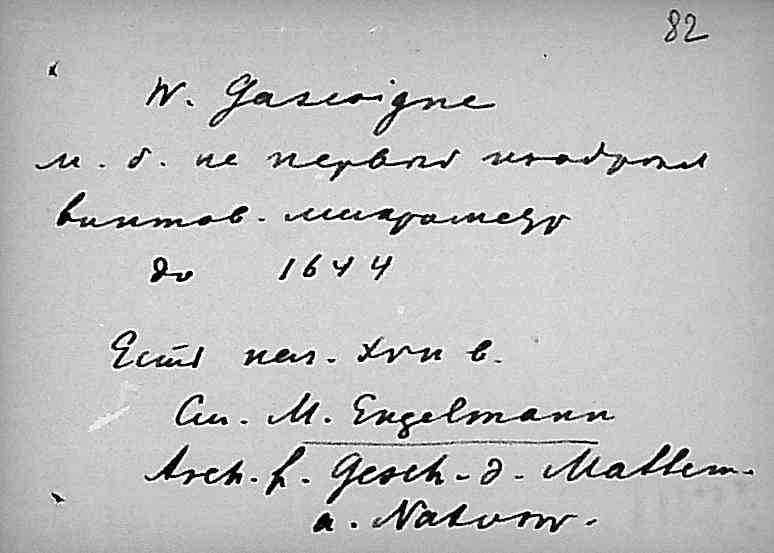 82
W. Gascoigne
м. б. не первый изобрел
винтов. микрометр
до 1644
Есть нач. XVII в.
См. M. Engelmann
Arch. f. Gesch. d. Mathem.
u. Naturw.